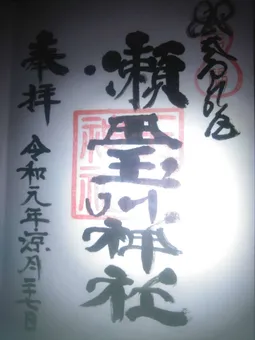 瀬田玉川神社
奉拝
令和元年涼月二十七日